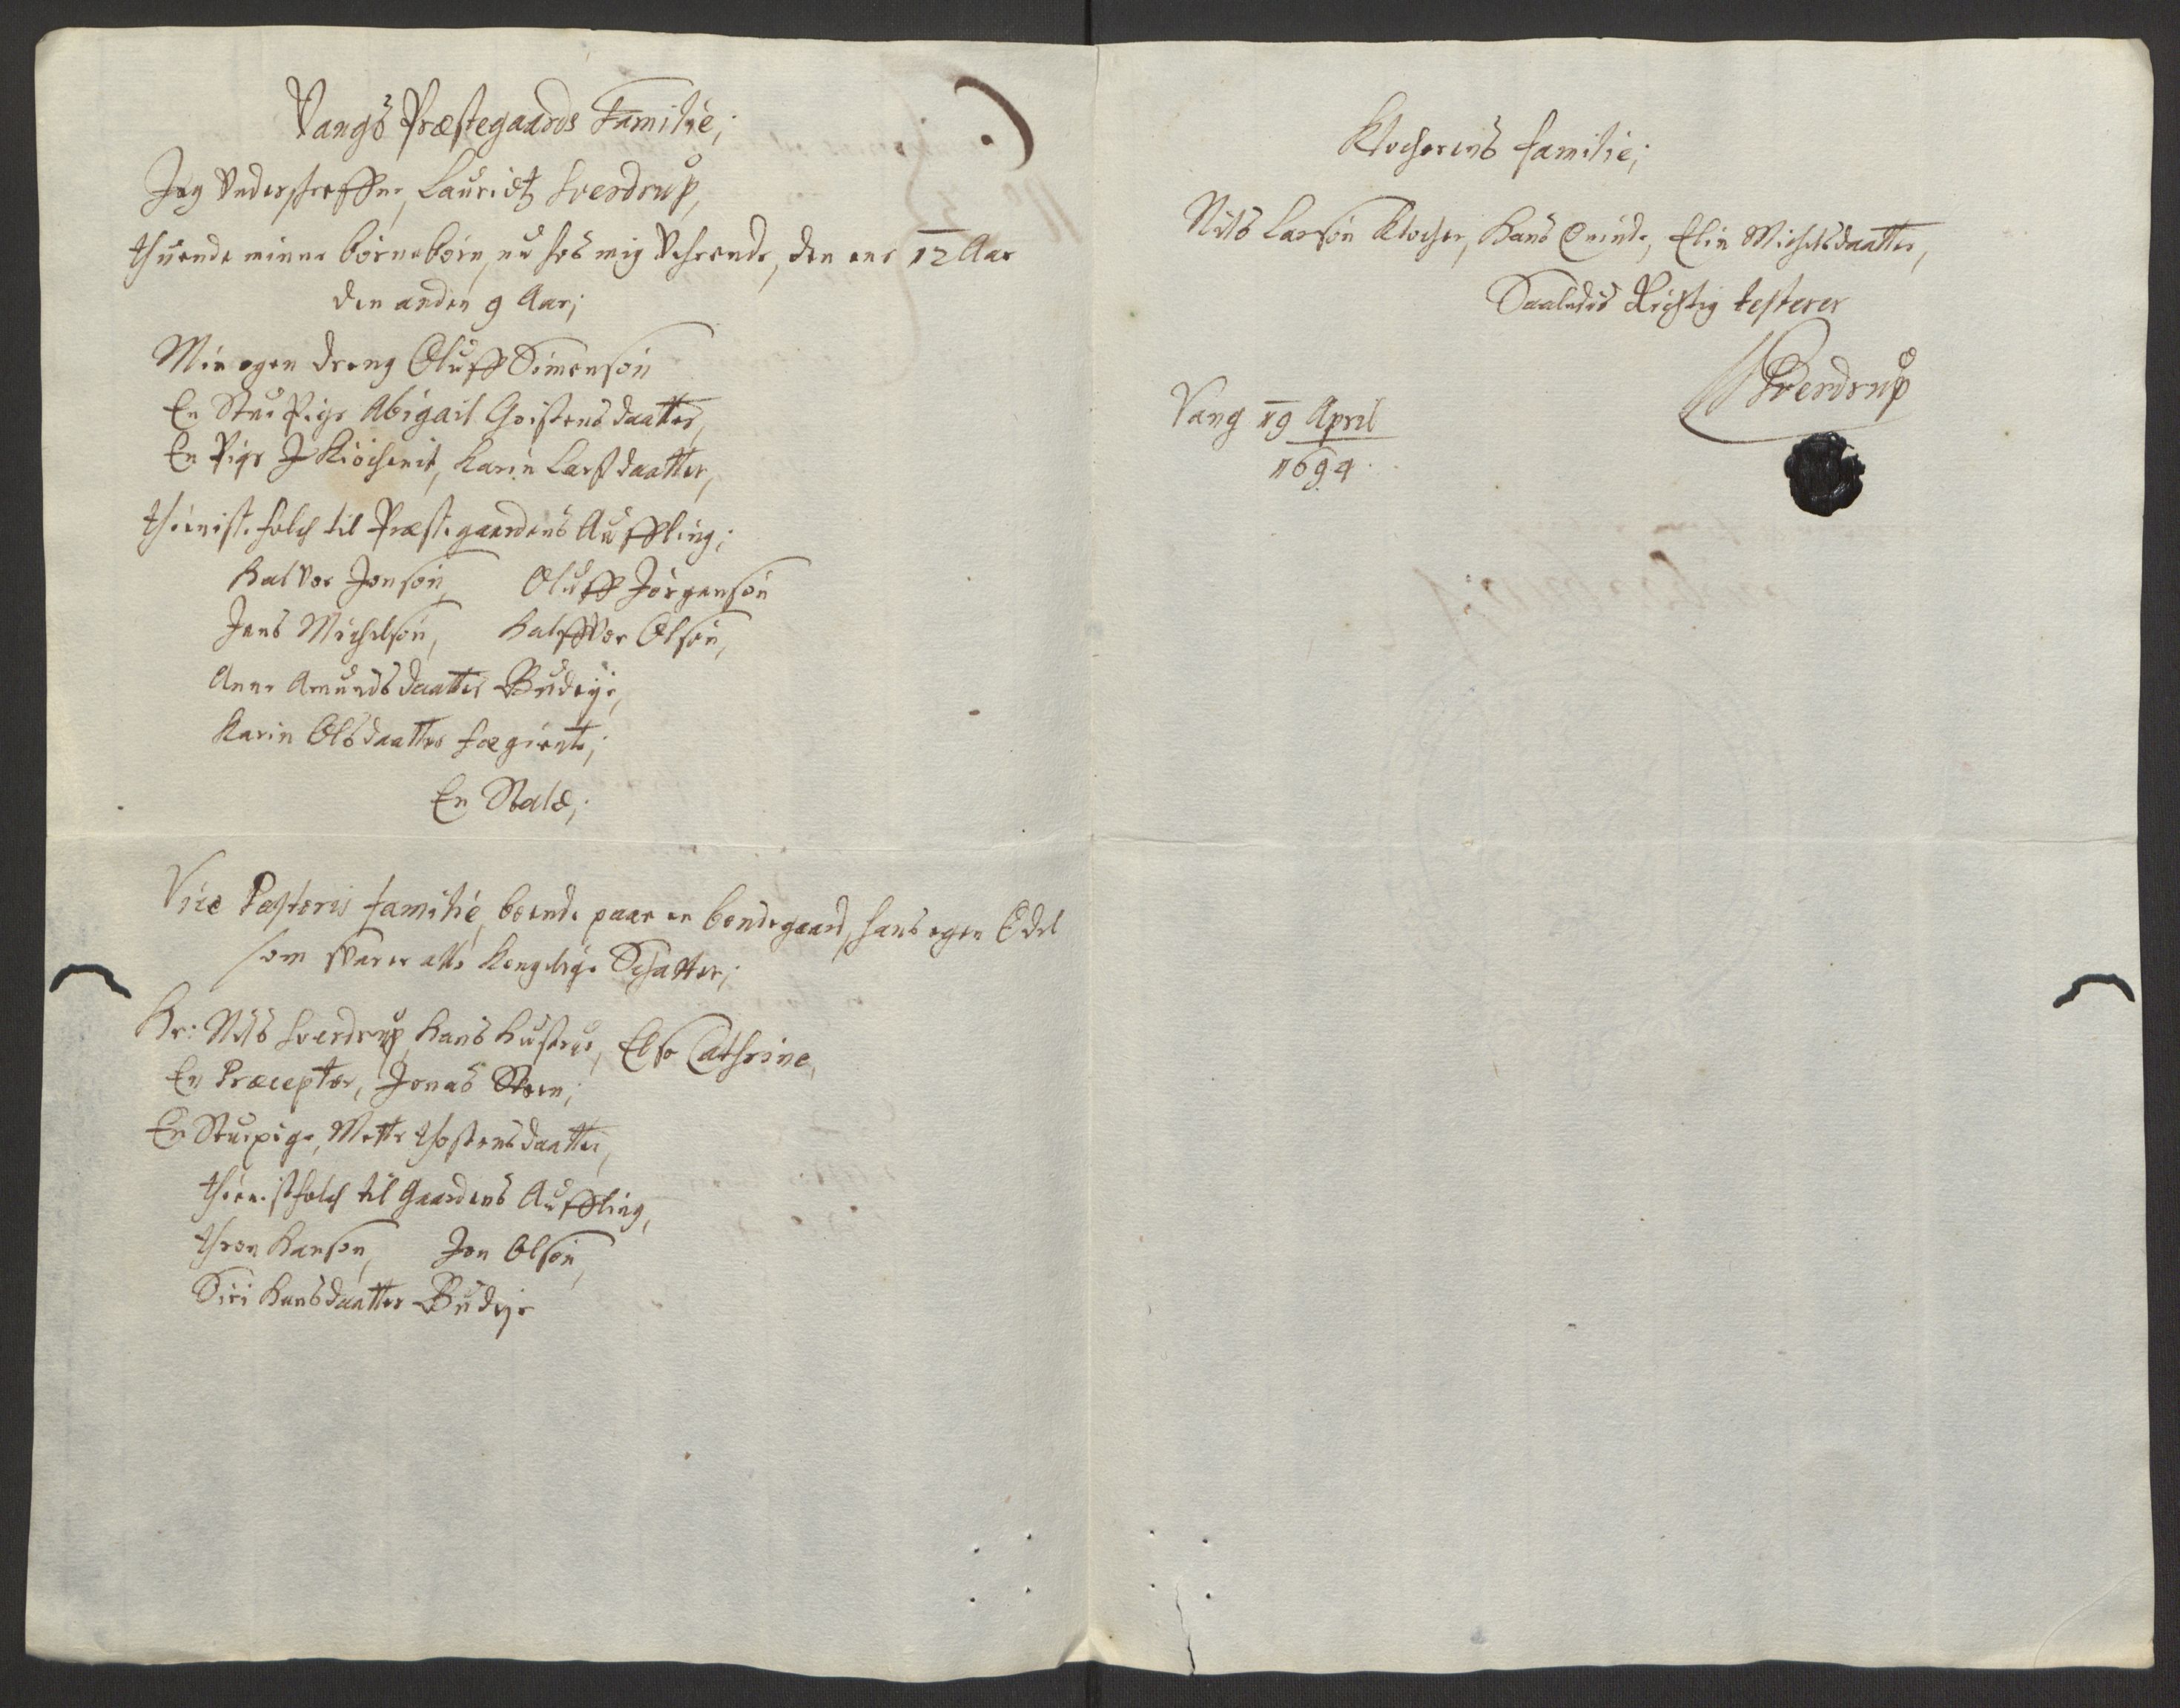 Vangs Præstegaards Familie;
Jeg Underschreffne, Lauridtz Sverdrup,
thuende minne børnebørn, nu hos mig Verende, den ene 12 Aar
den anden 9 Aar;
Min egen dreng Oluff Simensøn
En Stue Pige Abigail Goistensdaatter,
En Pige J Kiøchenit, Karin Larsdaatter,
thieniste folch til Præstegaardens Auffling;
Halvor Jonsøn, Oluff Jørgensøn
Jens Michelsøn, Halffvor Olsøn,
Anne Amundsdaatter Budeye,
Karin Olsdaatter fægiente;
En Stald;
Vice Pastoris familie, boende paa en bondegaard, hans egen Odel
som svarer alle Kongelige Schatter;
Hr: Nils Sverdrup, Hans Hustrue, Else Cathrine,
En Præceptor, Jonas Steen;
En Stuepige, Mette thostensdaatter,
thienistfolch til Gaardens Auffling,
thron Hansøn, Jon Olsøn,
Siri Hansdaatter Budeye
Klocherens familie;
Nils Larsøn Klocher, Hans Qvinde, Elin Michelsdaatter,
Saaledis Rigtig testerer
LSverdrup
Vang 19 April
1694